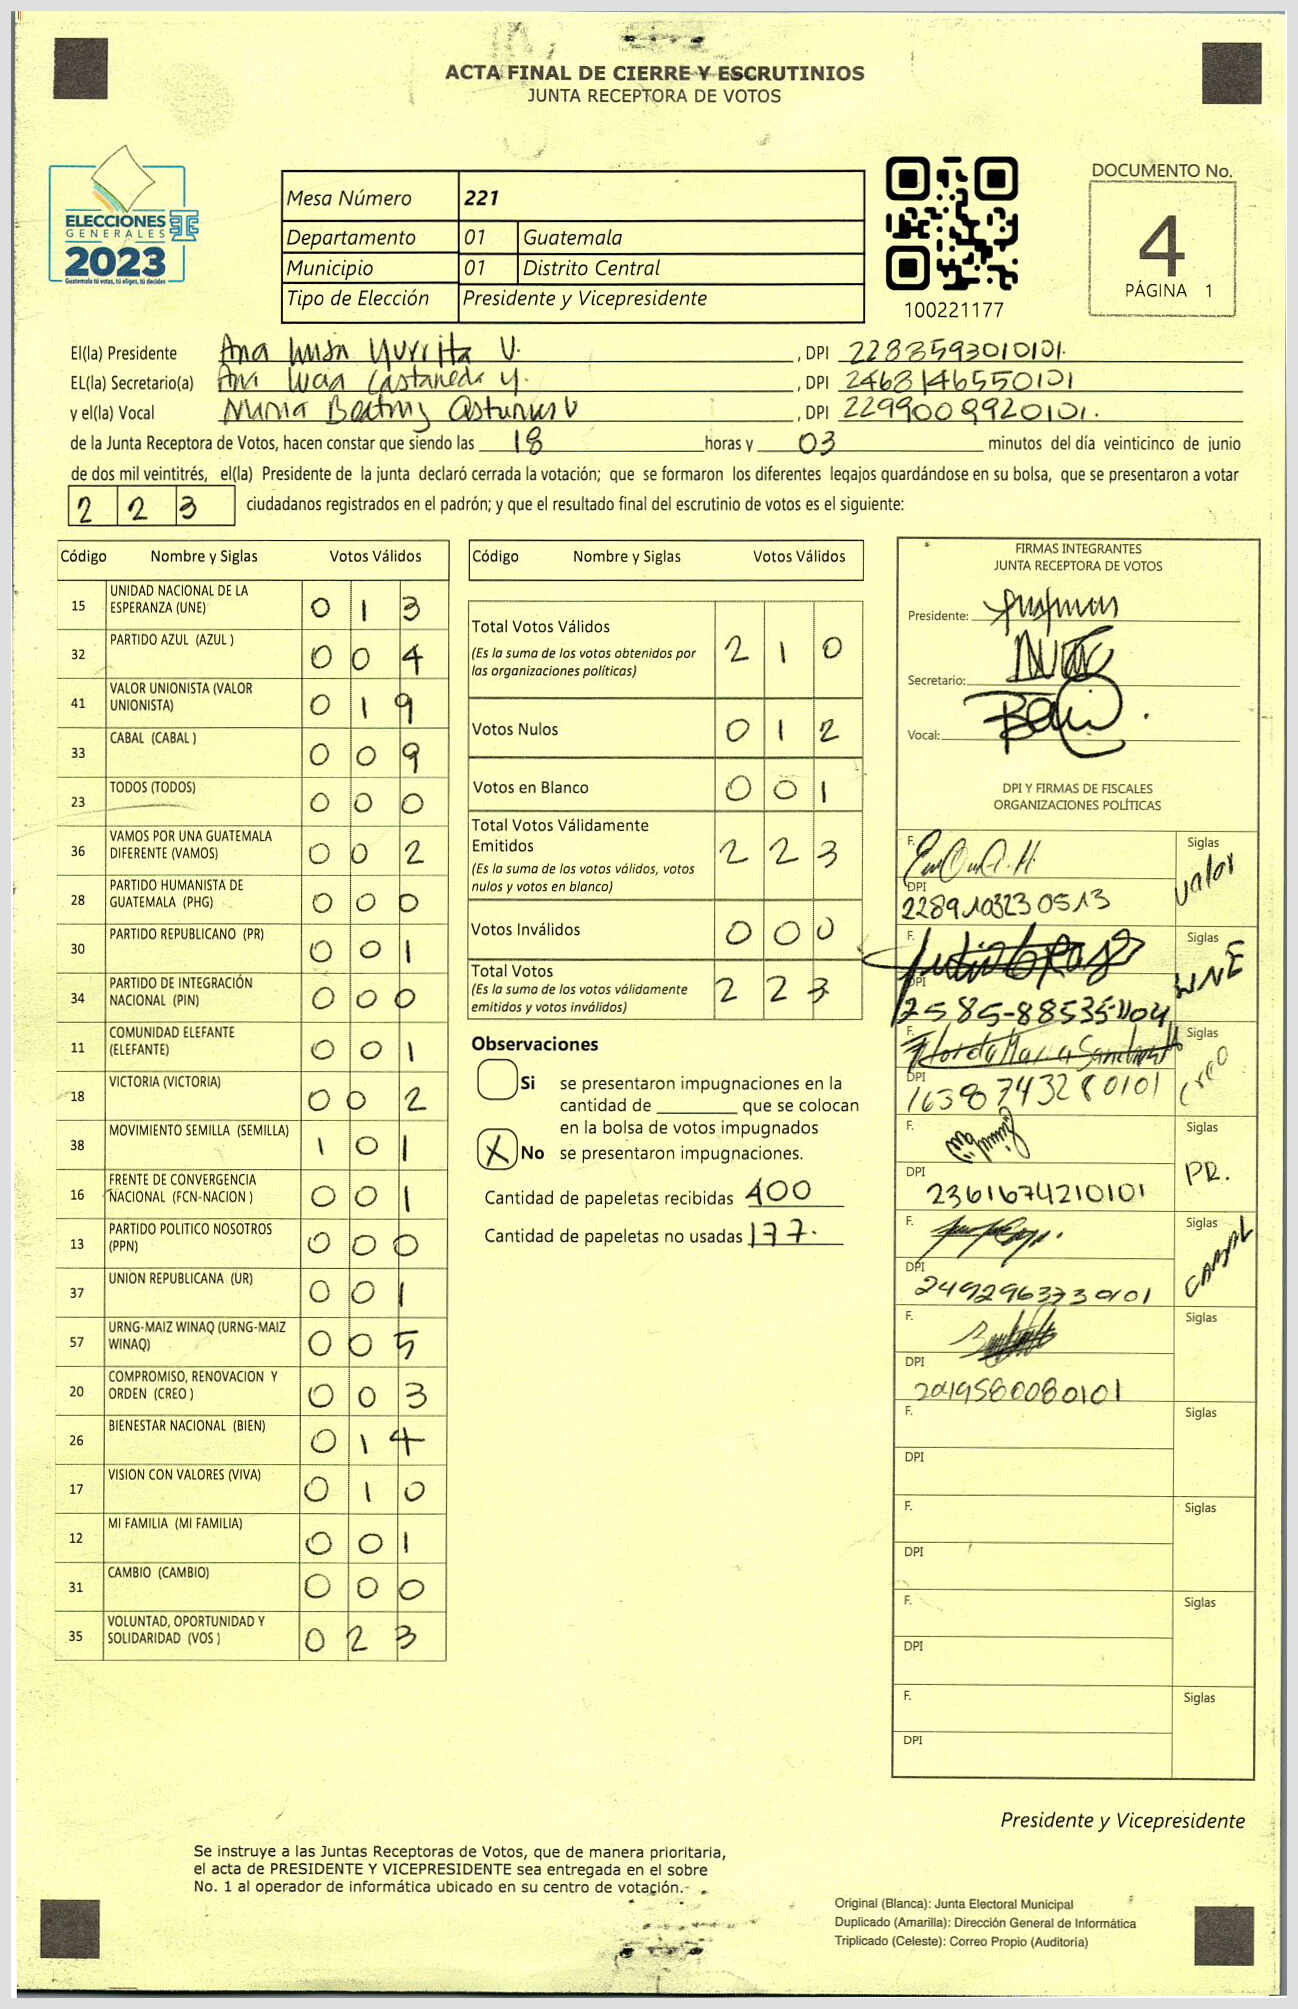 ACTA FINAL DE CIERRE Y ESCRUTINIOS
JUNTA RECEPTORA DE VOTOS
ELECCIONES
GENERALES
2023
Guatemala tú votas, tú eliges, tú decides
Mesa Número 221
Departamento 01 Guatemala
Municipio 01 Distrito Central
Tipo de Elección Presidente y Vicepresidente
100221177
DOCUMENTO No.
4
PÁGINA 1
El(la) Presidente Ana Luisa Yurrita V. , DPI 2283593010101.
EL(la) Secretario(a) Ana Lucia Castañeda Y. , DPI 2463146550101
y el(la) Vocal Maria Beatriz Asturias V , DPI 2299009920101.
de la Junta Receptora de Votos, hacen constar que siendo las 18 horas y 03 minutos del día veinticinco de junio
de dos mil veintitrés, el(la) Presidente de la junta declaró cerrada la votación; que se formaron los diferentes legajos guardándose en su bolsa, que se presentaron a votar
2 2 3 ciudadanos registrados en el padrón; y que el resultado final del escrutinio de votos es el siguiente:
Código Nombre y Siglas Votos Válidos
15 UNIDAD NACIONAL DE LA ESPERANZA (UNE) 0 1 3
32 PARTIDO AZUL (AZUL ) 0 0 4
41 VALOR UNIONISTA (VALOR UNIONISTA) 0 1 9
33 CABAL (CABAL ) 0 0 9
23 TODOS (TODOS) 0 0 0
36 VAMOS POR UNA GUATEMALA DIFERENTE (VAMOS) 0 0 2
28 PARTIDO HUMANISTA DE GUATEMALA (PHG) 0 0 0
30 PARTIDO REPUBLICANO (PR) 0 0 1
34 PARTIDO DE INTEGRACIÓN NACIONAL (PIN) 0 0 0
11 COMUNIDAD ELEFANTE (ELEFANTE) 0 0 1
18 VICTORIA (VICTORIA) 0 0 2
38 MOVIMIENTO SEMILLA (SEMILLA) 1 0 1
16 FRENTE DE CONVERGENCIA NACIONAL (FCN-NACION ) 0 0 1
13 PARTIDO POLITICO NOSOTROS (PPN) 0 0 0
37 UNION REPUBLICANA (UR) 0 0 1
57 URNG-MAIZ WINAQ (URNG-MAIZ WINAQ) 0 0 5
20 COMPROMISO, RENOVACION Y ORDEN (CREO ) 0 0 3
26 BIENESTAR NACIONAL (BIEN) 0 1 4
17 VISION CON VALORES (VIVA) 0 1 0
12 MI FAMILIA (MI FAMILIA) 0 0 1
31 CAMBIO (CAMBIO) 0 0 0
35 VOLUNTAD, OPORTUNIDAD Y SOLIDARIDAD (VOS ) 0 2 3
Código Nombre y Siglas Votos Válidos
Total Votos Válidos 2 1 0
(Es la suma de los votos obtenidos por
las organizaciones políticas)
Votos Nulos 0 1 2
Votos en Blanco 0 0 1
Total Votos Válidamente
Emitidos 2 2 3
(Es la suma de los votos válidos, votos
nulos y votos en blanco)
Votos Inválidos 0 0 0
Total Votos 2 2 3
(Es la suma de los votos válidamente
emitidos y votos inválidos)
Observaciones
Si se presentaron impugnaciones en la
cantidad de ________ que se colocan
en la bolsa de votos impugnados
X No se presentaron impugnaciones.
Cantidad de papeletas recibidas 400
Cantidad de papeletas no usadas 177.
FIRMAS INTEGRANTES
JUNTA RECEPTORA DE VOTOS
Presidente:
Secretario:
Vocal:
DPI Y FIRMAS DE FISCALES
ORGANIZACIONES POLÍTICAS
F. Siglas Valor
DPI 2289103230513
F. Siglas UNE
DPI 2585-88535-1104
F. Siglas Creo
DPI 1638743280101
F. Siglas PR.
DPI 2361674210101
F. Siglas CABAL
DPI 2492963730101
F. Siglas
DPI 2049580080101
F. Siglas
DPI
F. Siglas
DPI
F. Siglas
DPI
F. Siglas
DPI
Presidente y Vicepresidente
Se instruye a las Juntas Receptoras de Votos, que de manera prioritaria,
el acta de PRESIDENTE Y VICEPRESIDENTE sea entregada en el sobre
No. 1 al operador de informática ubicado en su centro de votación.
Original (Blanca): Junta Electoral Municipal
Duplicado (Amarilla): Dirección General de Informática
Triplicado (Celeste): Correo Propio (Auditoría)